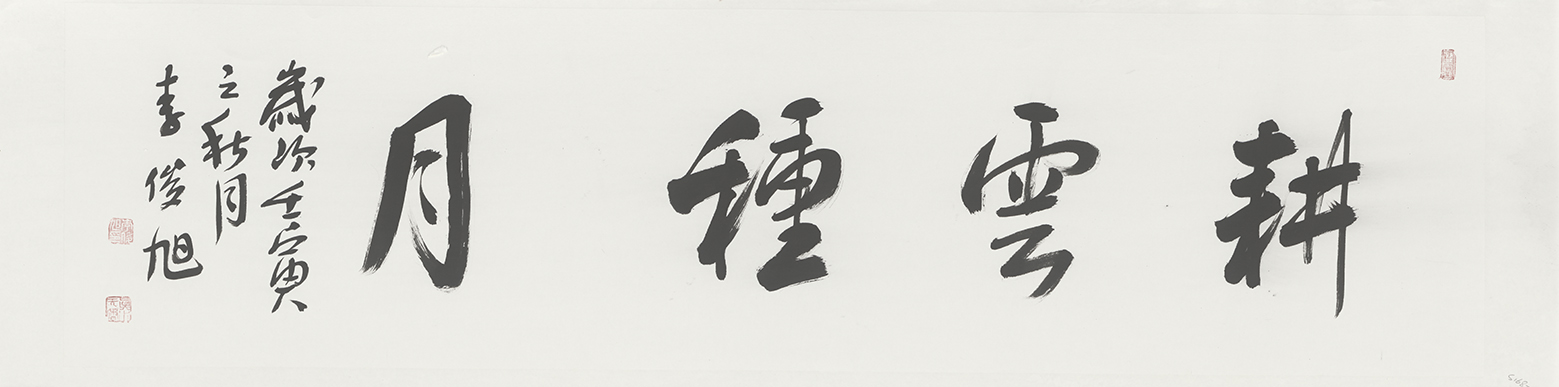 耕雲種月
歲次壬寅
之秋月
李俊旭